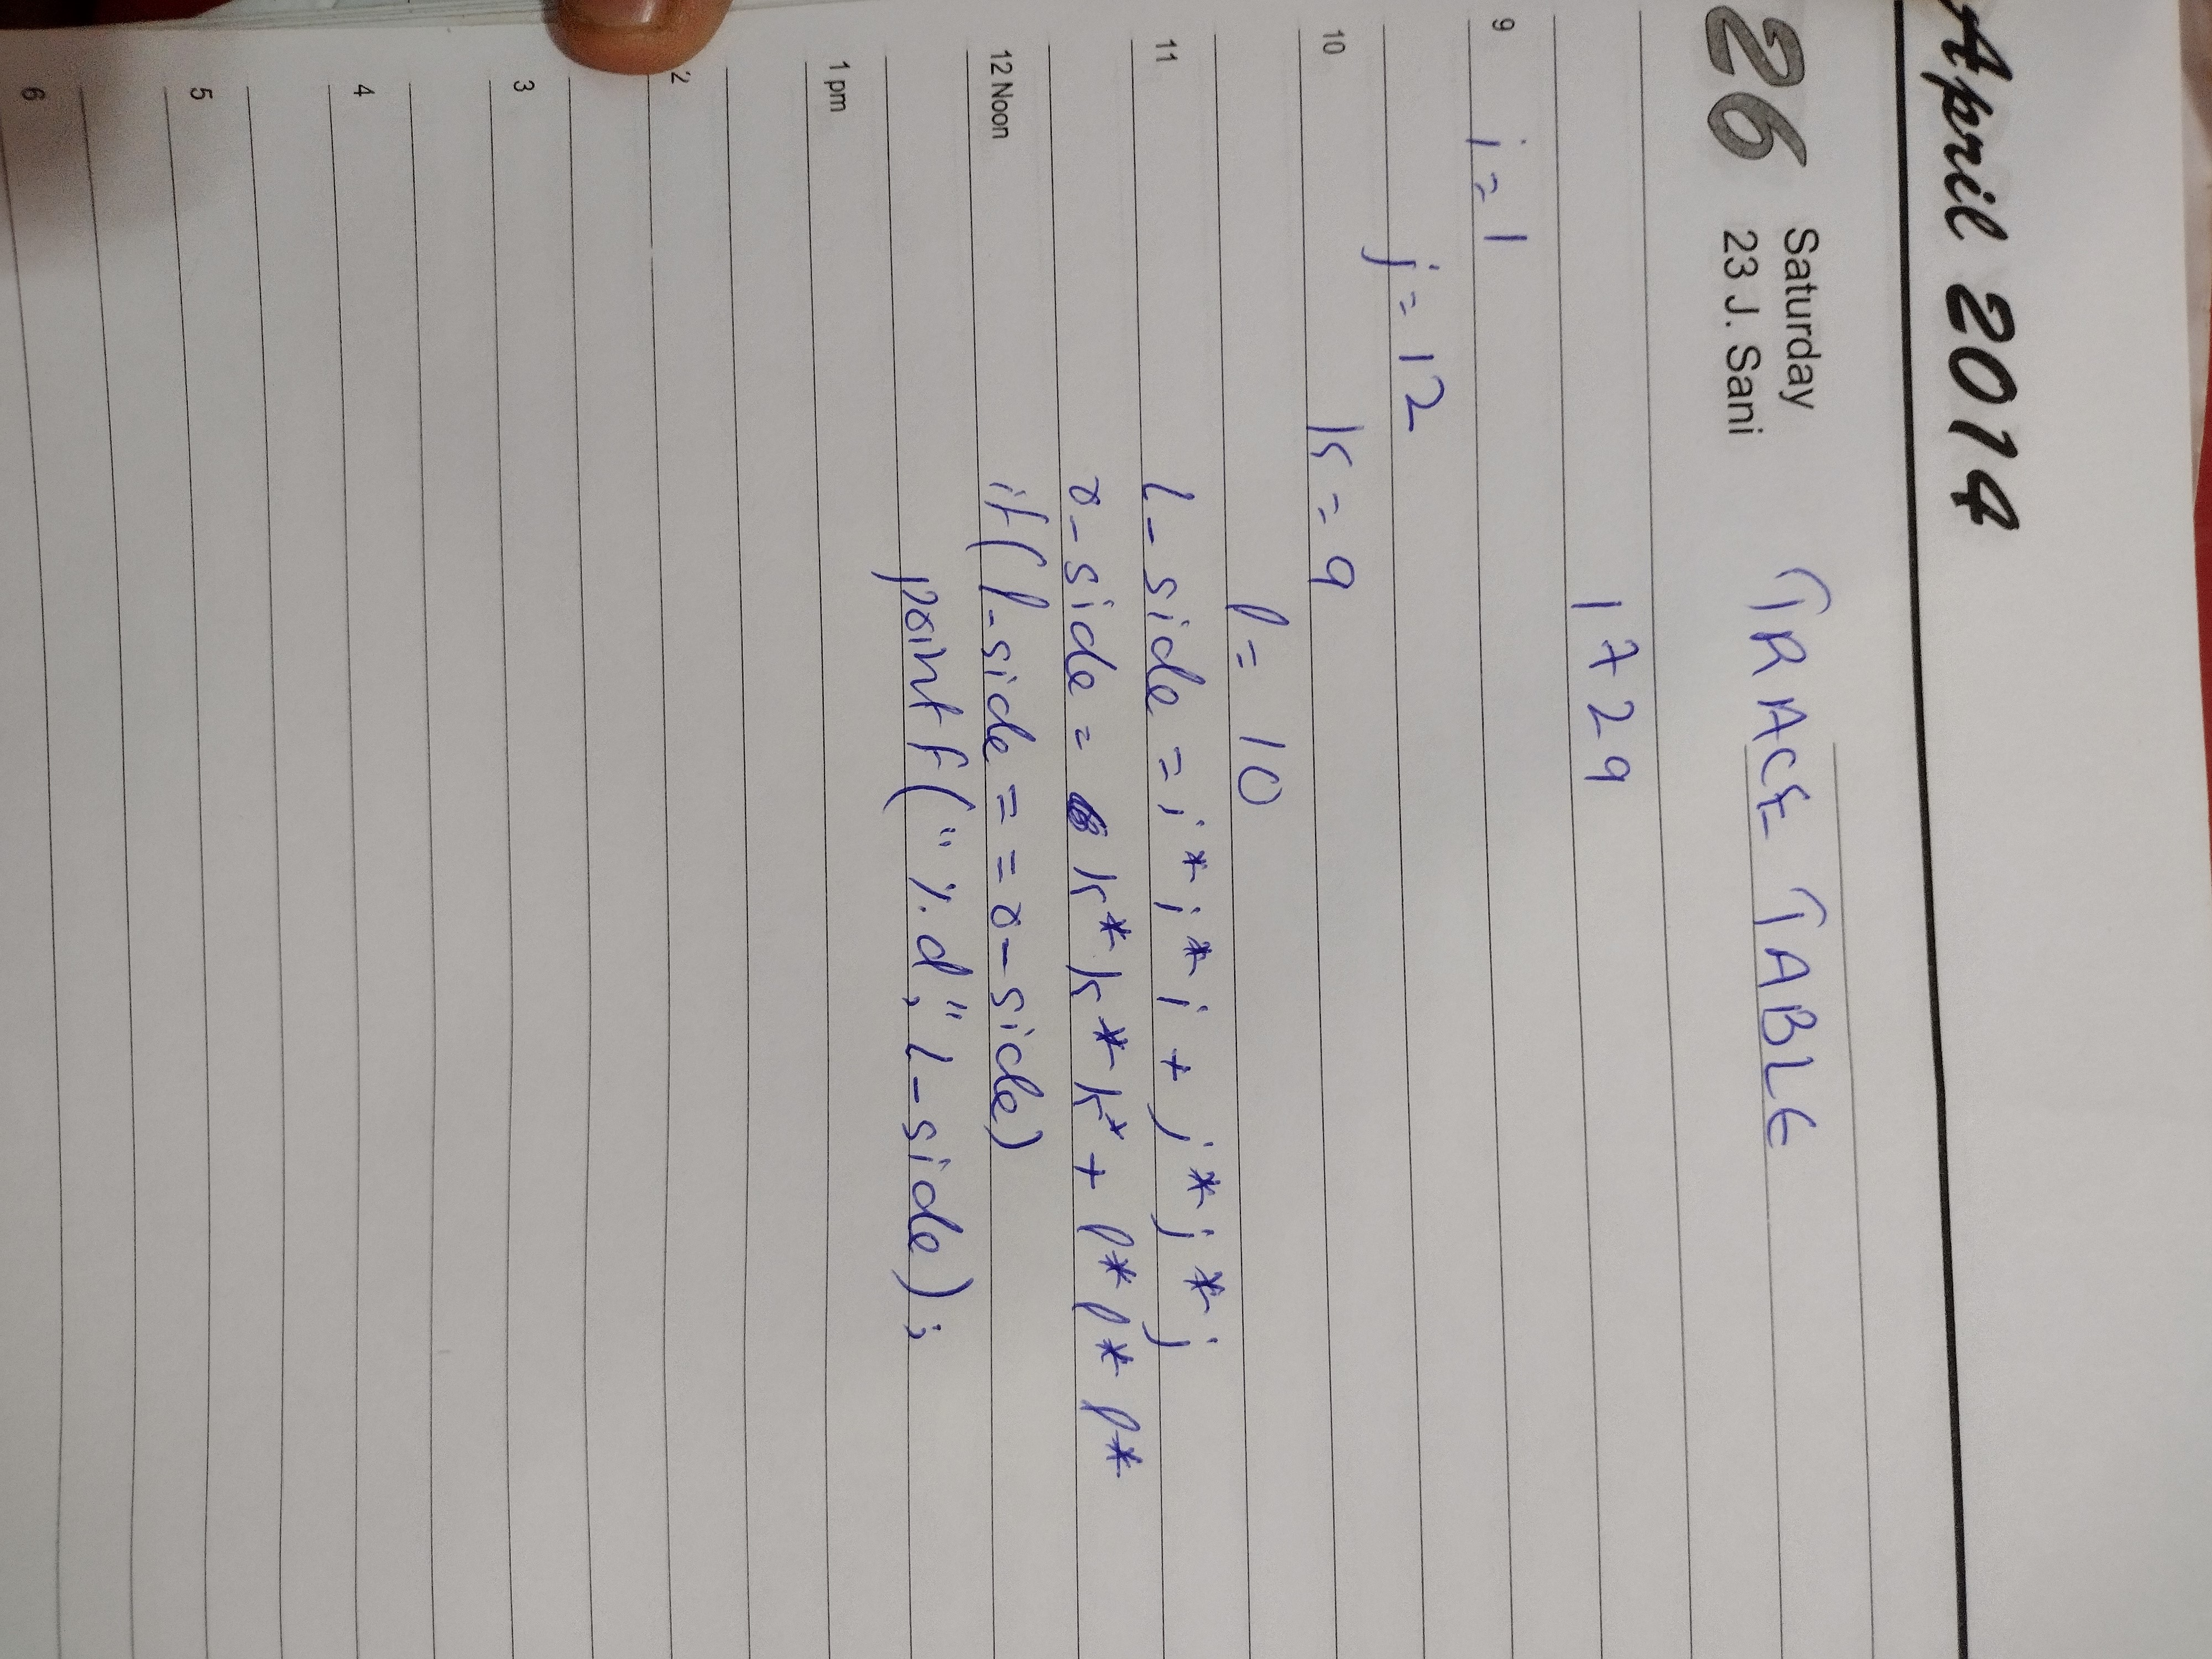 April 2014
26 Saturday
23 J. Sani
TRACE TABLE
1729
9
i = 1
j = 12
10
k = 9
l = 10
11
l_side = i*i*i + j*j*j
r_side = k*k*k + l*l*l*
12 Noon
if(l_side == r_side)
printf("%d," l_side);
1 pm
2
3
4
5
6